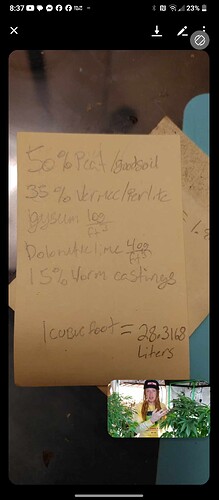 8:37
23%
50% Peat/good soil
35% Vermec/Perlite
Gysum 100/Ft³
Dolomette lime 400/ft³
15% Worm castings
1 cubic foot = 28.3168
Liters